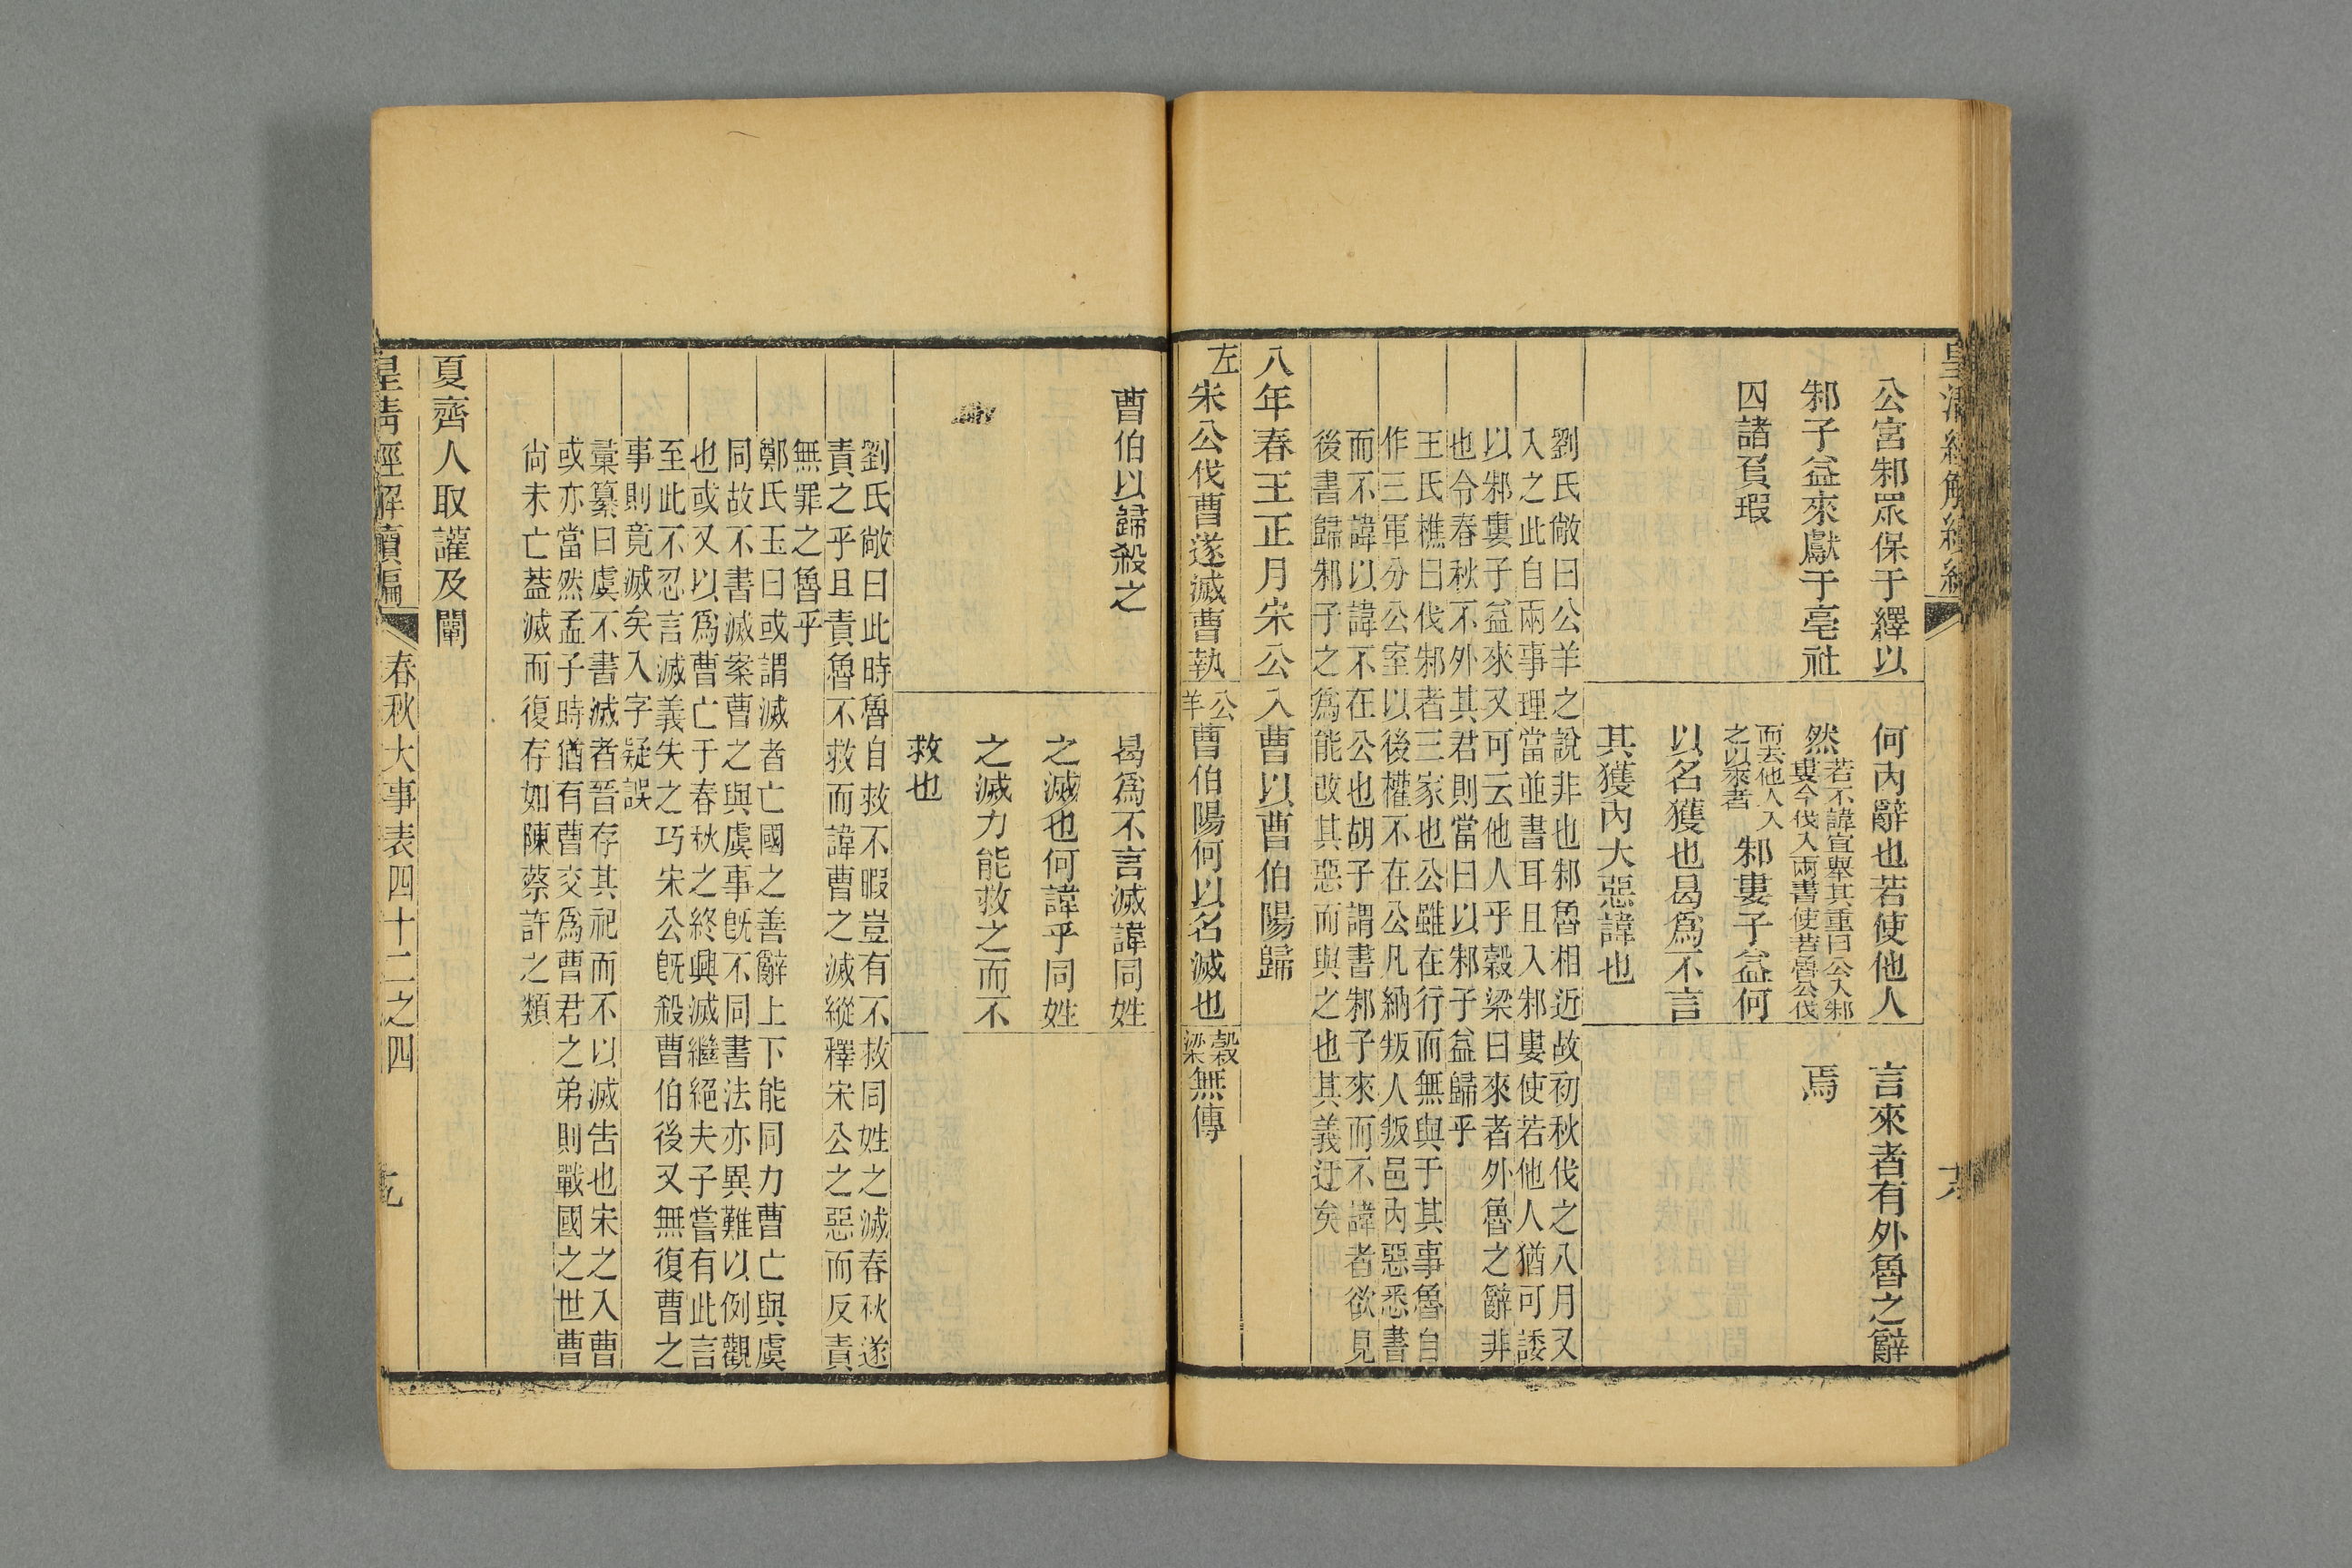 皇清經解續編
公宮邾眾保于繹以
何內辭也若使他人
言來者有外魯之辭
邾子益來獻于亳社
然
若不諱宜舉其重曰公入邾
婁今伐入兩書使若魯公伐
焉
囚諸負瑕
而去他人入
之以來者
邾婁子益何
以名獲也曷為不言
其獲內大惡諱也
劉氏敞曰公羊之說非也邾魯相近故初秋伐之八月又
入之此自兩事理當並書耳且入邾婁使若他人猶可諉
以邾婁子益來又可云他人乎穀梁曰來者外魯之辭非
也令春秋不外其君則當曰以邾子益歸乎
王氏樵曰伐邾者三家也公雖在行而無與于其事魯自
作三軍分公室以後權不在公凡納叛人叛邑內惡悉書
而不諱以諱不在公也胡子謂書邾子來而不諱者欲見
後書歸邾子之為能改其惡而與之也其義迂矣
八年春王正月宋公入曹以曹伯陽歸
左宋公伐曹遂滅曹執
公羊曹伯陽何以名滅也
穀梁無傳
曹伯以歸殺之
曷為不言滅諱同姓
之滅也何諱乎同姓
之滅力能救之而不
救也
劉氏敞曰此時魯自救不暇豈有不救同姓之滅春秋遂
責之乎且責魯不救而諱曹之滅縱釋宋公之惡而反責
無罪之魯乎
鄭氏玉曰或謂滅者亡國之善辭上下能同力曹亡與虞
同故不書滅案曹之與虞事既不同書法亦異難以例觀
也或又以為曹亡于春秋之終興滅繼絕夫子嘗有此言
至此不忍言滅義失之巧宋公既殺曹伯後又無復曹之
事則竟滅矣入字疑誤
彙纂曰虞不書滅者晉存其祀而不以滅告也宋之入曹
或亦當然孟子時猶有曹交為曹君之弟則戰國之世曹
尚未亡蓋滅而復存如陳蔡許之類
夏齊人取讙及闡
皇清經解續編
春秋大事表四十二之四